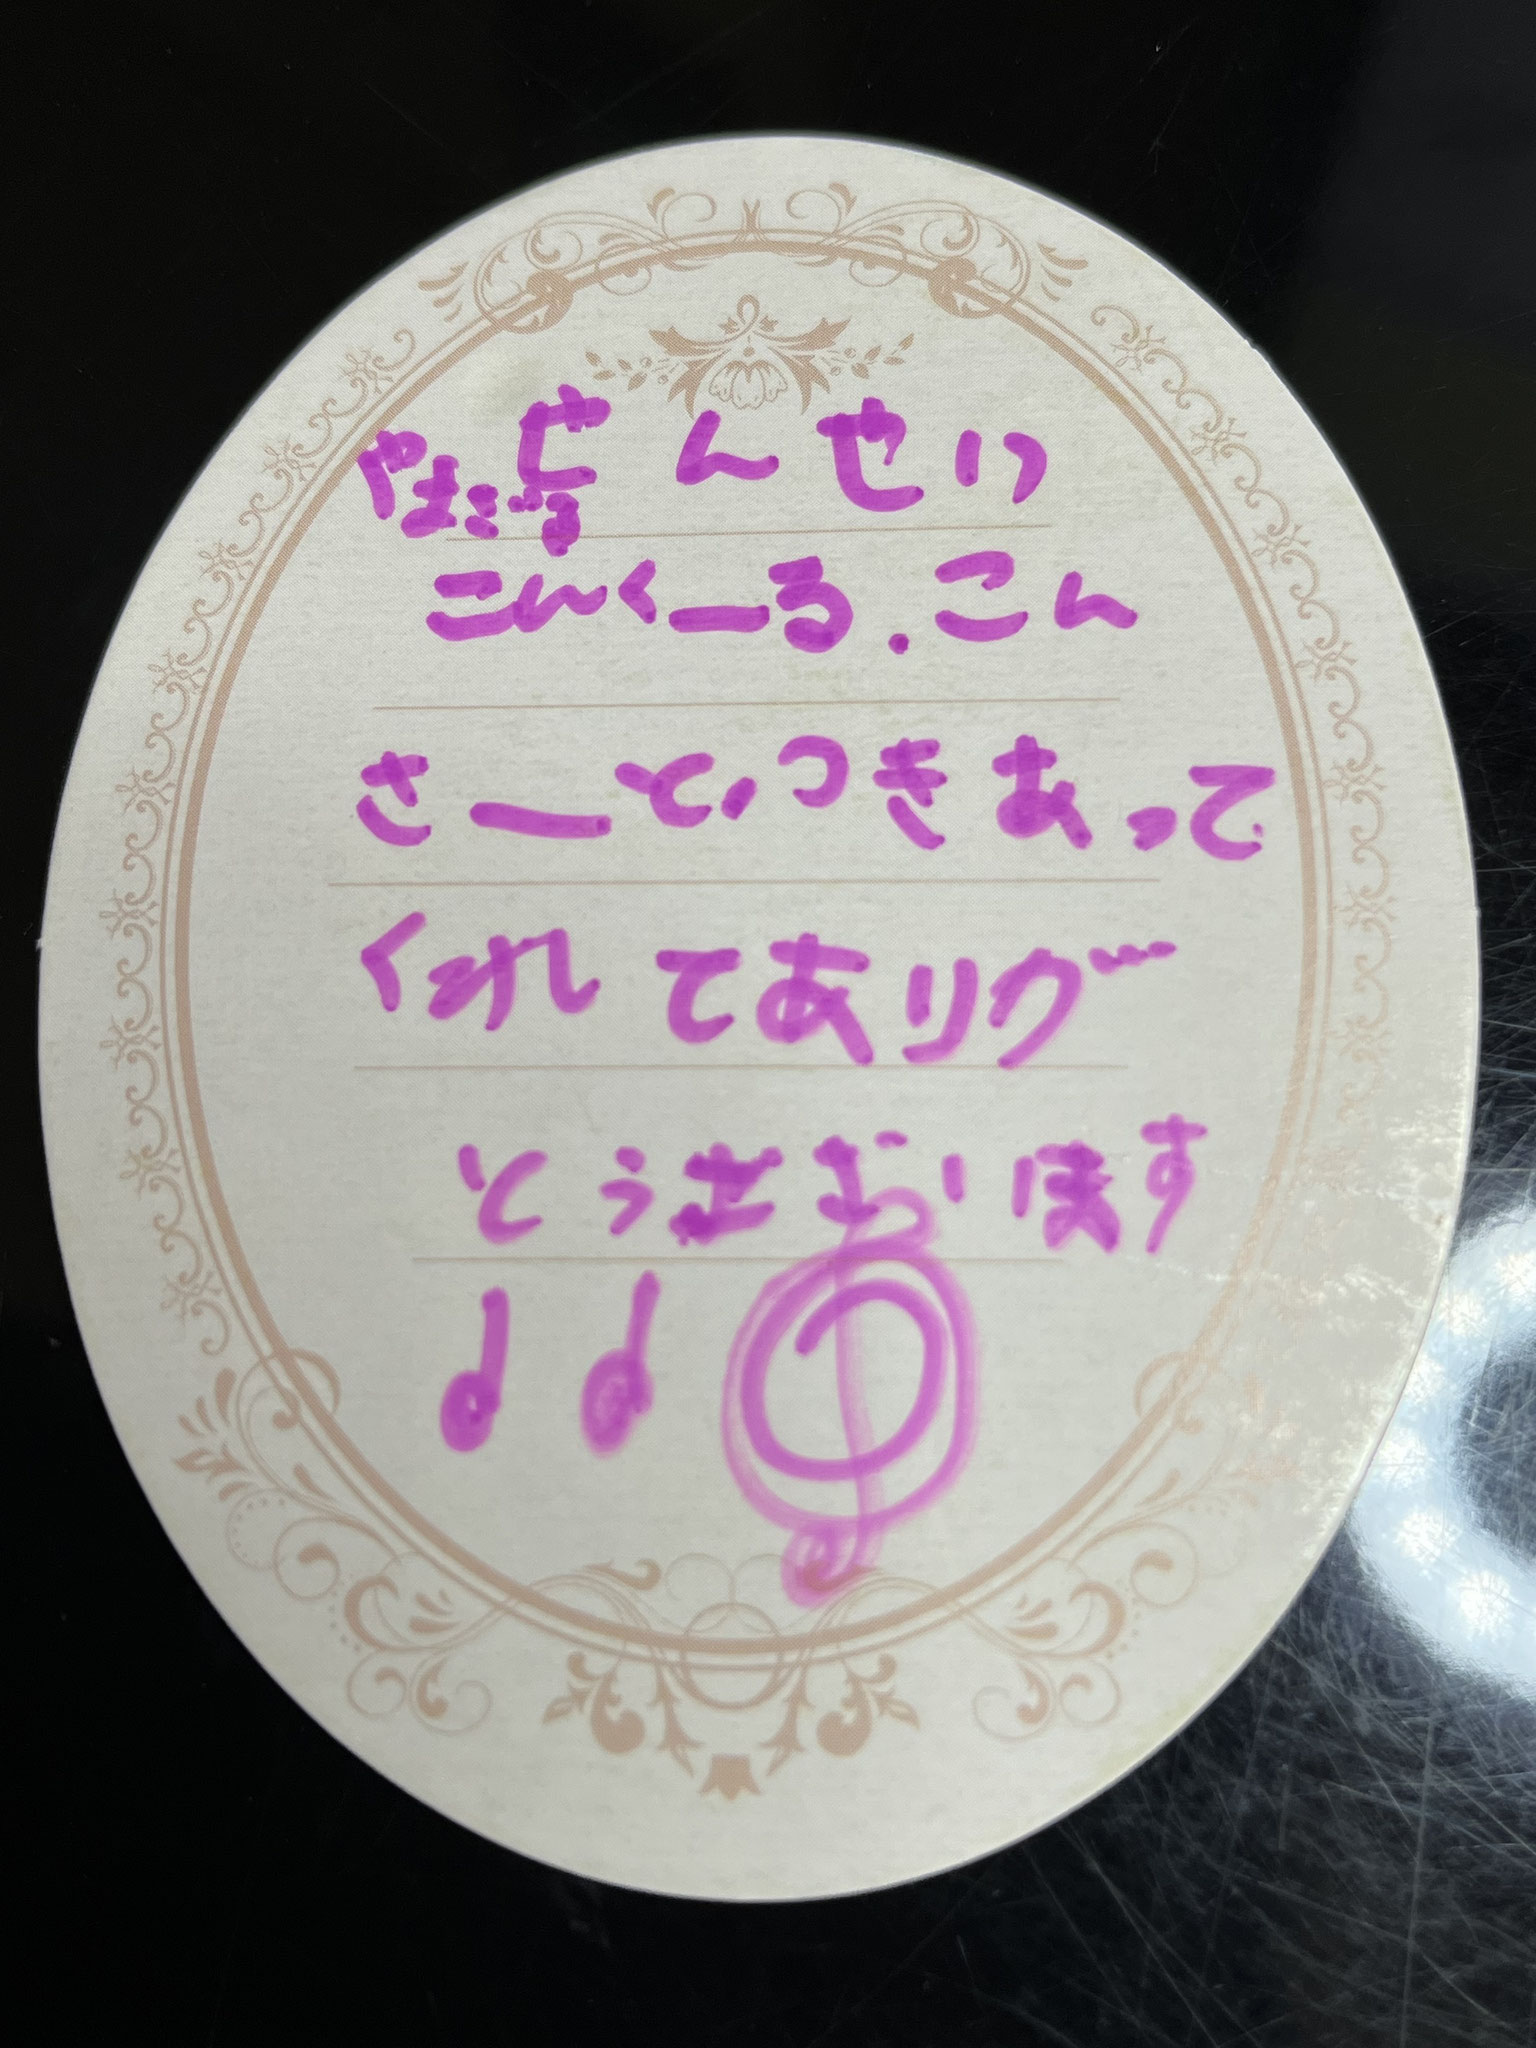 せんせい
こんくーる.こん
さーと、つきあって
くれてありが
とうございます